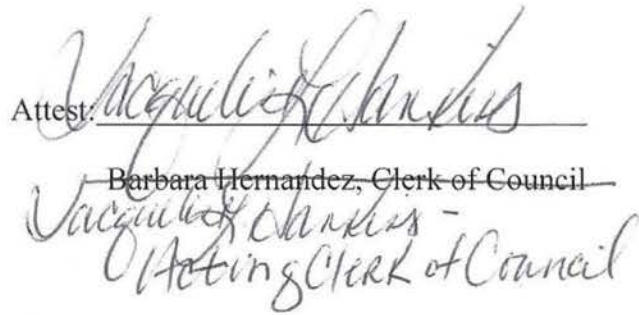 Attest: Jacqueline L. Hankins
Barbara Hernandez, Clerk of Council
Jacqueline L. Hankins -
Acting Clerk of Council